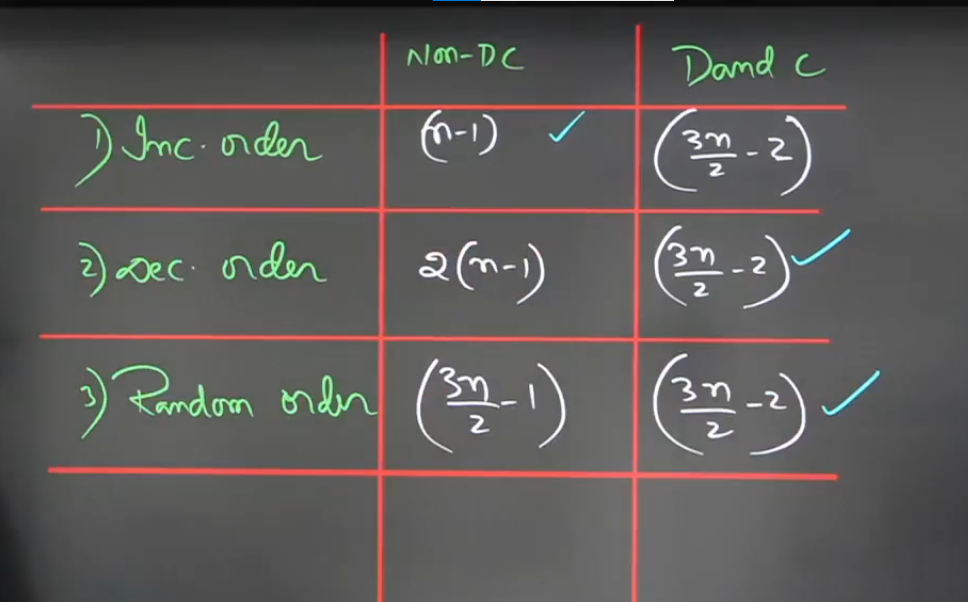 Non-DC Dand C
1) Inc. order (n-1) ✓ (3n/2 - 2)
2) Dec. order 2(n-1) (3n/2 - 2) ✓
3) Random order (3n/2 - 1) (3n/2 - 2) ✓